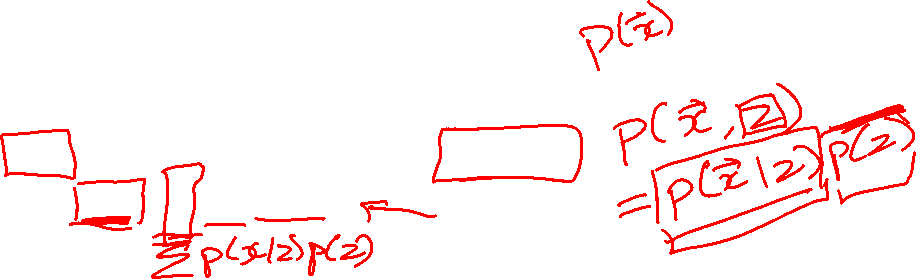 p(x⃗)
p(x⃗, z)
= p(x⃗|z) p(z)
Σ p(x|z) p(z)